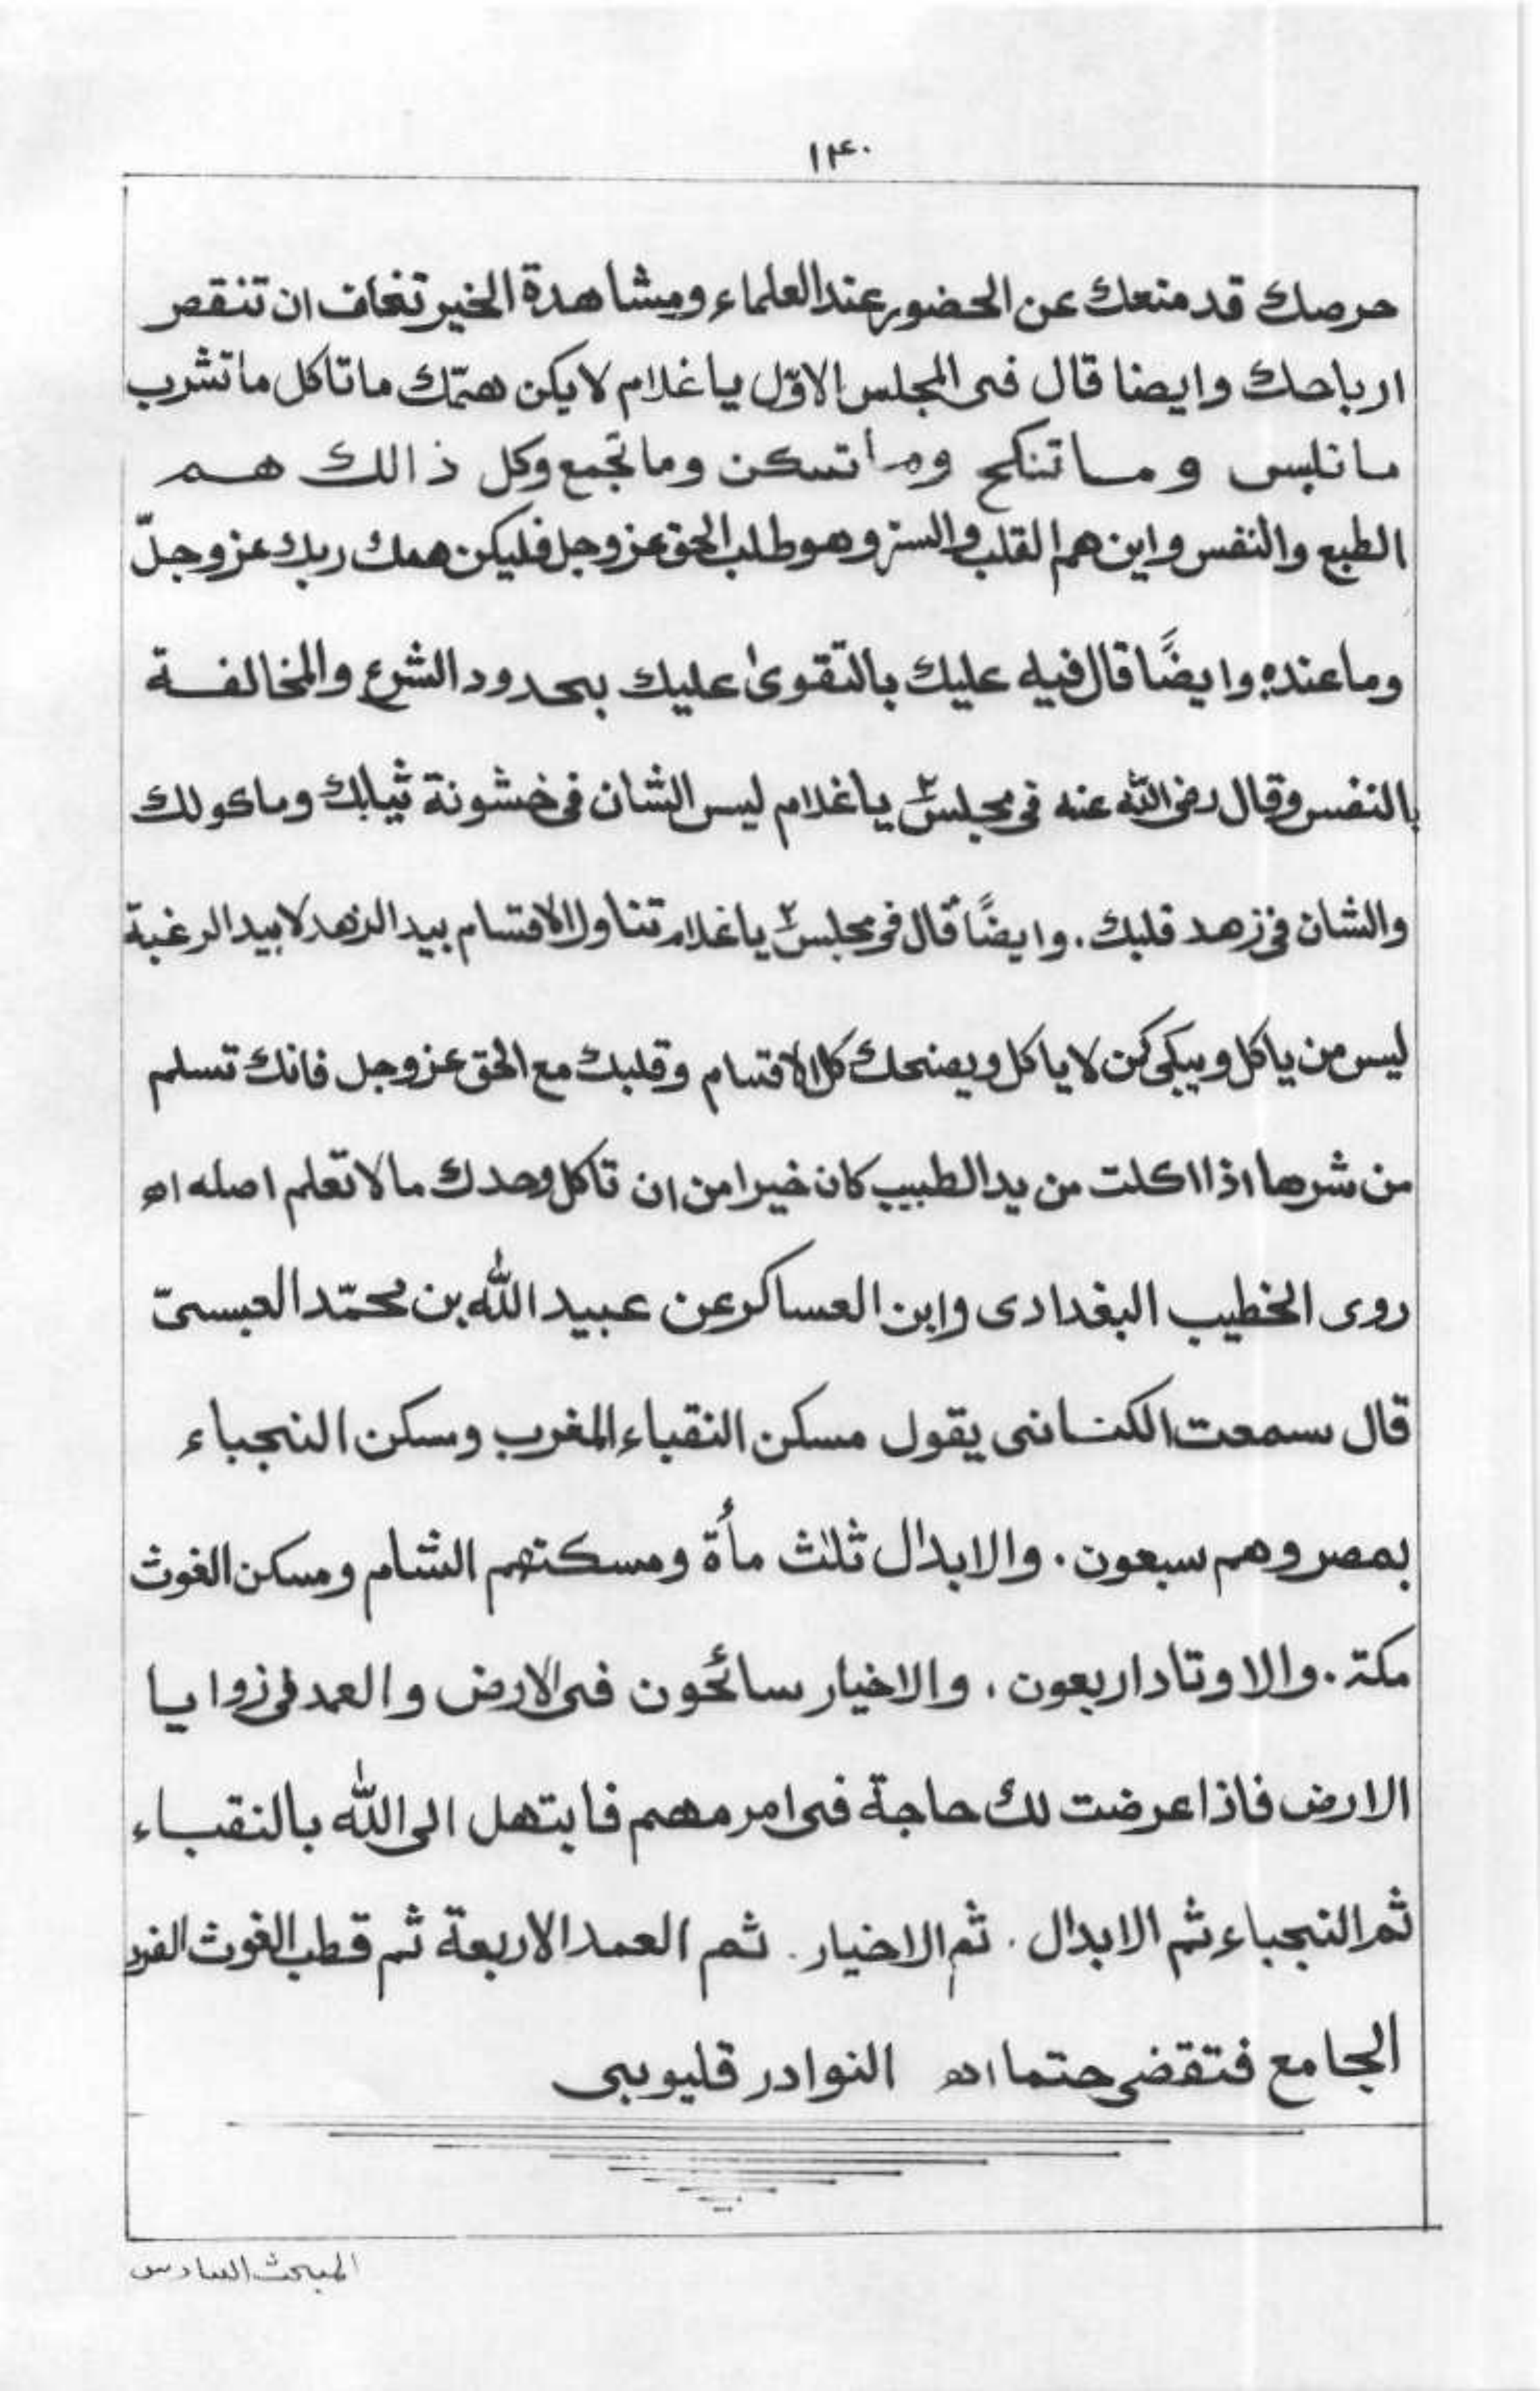 ١٤٠
حرصك قد منعك عن الحضور عند العلماء ومشاهدة الخير تخاف ان تنقص
ارباحك وايضا قال فى المجلس الاوّل ياغلام لايكن همّك ماتاكل ماتشرب
ماتلبس وماتنكح وماتسكن وماتجمع وكل ذالك هم
الطبع والنفس واين هم القلب والسر وهو طلب الحق عزوجل فليكن همك ربك عزوجلّ
وماعنده وايضًا قال فيه عليك بالتقوىٰ عليك بحدود الشرع والمخالفة
بالنفس وقال رضى الله عنه فى مجلس ياغلام ليس الشان فى خشونة ثيابك وماكولك
والشان فى زهد قلبك. وايضًا قال فى مجلس ياغلام تناول الاقسام بيد الزهد لا بيد الرغبة
ليس من ياكل ويبكى كمن لاياكل ويضحك كل الاقسام وقلبك مع الحق عزوجل فانك تسلم
من شرها اذا اكلت من يد الطبيب كان خيرا من ان تاكل وحدك مالاتعلم اصله اه
روى الخطيب البغدادى وابن العساكر عن عبيد الله بن محمّد العبسىّ
قال سمعت الكنانى يقول مسكن النقباء المغرب وسكن النجباء
بمصر وهم سبعون. والابدال ثلٰث مأة ومسكنهم الشام ومسكن الغوث
مكة. والاوتاد اربعون، والاخيار سائحون فى الارض والعمد فى زوايا
الارض فاذا عرضت لك حاجة فى امر مهم فابتهل الى الله بالنقباء
ثم النجباء ثم الابدال. ثم الاخيار. ثم العمد الاربعة ثم قطب الغوث الفرد
الجامع فتقضى حتما اه النوادر قليوبى
المبحث السادس